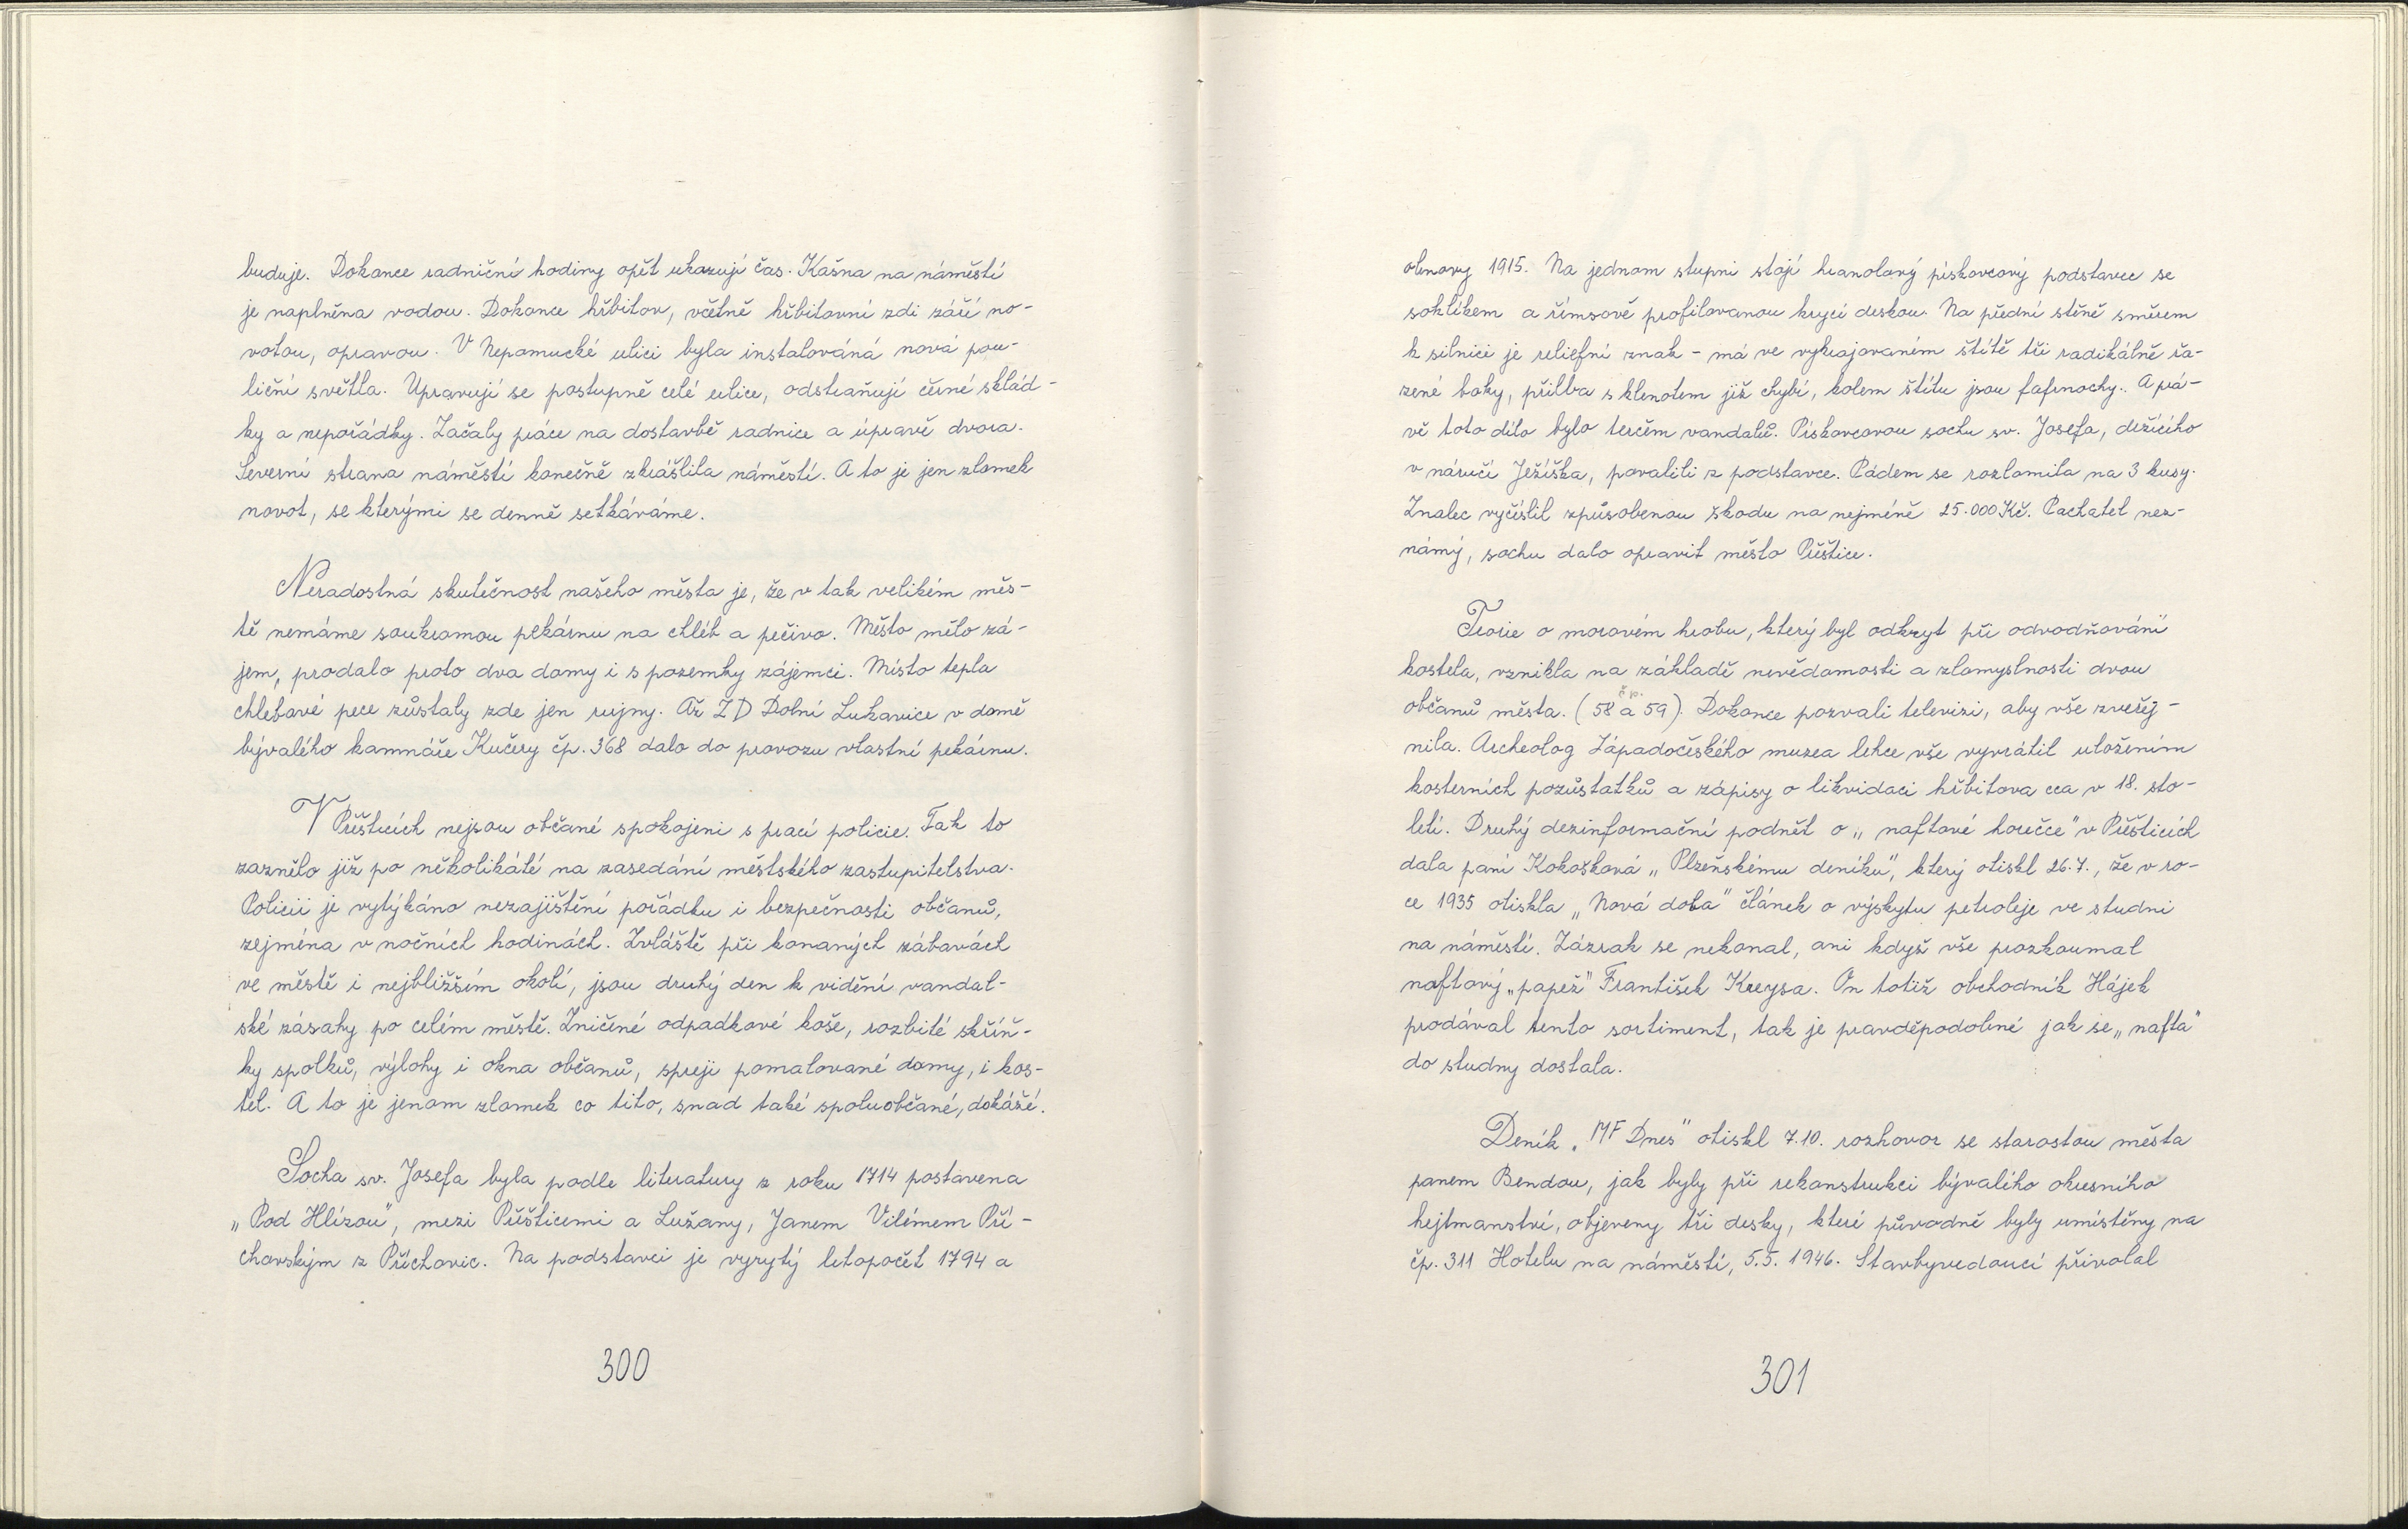 buduje. Dokonce radniční hodiny opět ukazují čas. Kašna na náměstí
je naplněna vodou. Dokonce hřbitov, včetně hřbitovní zdi září no-
votou, opravou. V Nepomucké ulici byla instalováná nová pou-
liční světla. Upravují se postupně celé ulice, odstraňují černé sklád-
ky a nepořádky. Začaly práce na dostavbě radnice a úpravě dvora.
Severní strana náměstí konečně zkrášlila náměstí. A to je jen zlomek
novot, se kterými se denně setkáváme.
Neradostná skutečnost našeho města je, že v tak velikém měs-
tě nemáme soukromou pekárnu na chléb a pečivo. Město mělo zá-
jem, prodalo proto dva domy i s pozemky zájemci. Místo tepla
chlebové pece zůstaly zde jen rujny. Až ZD Dolní Lukavice v domě
bývalého kamnáře Kučery čp. 368 dalo do provozu vlastní pekárnu.
V Přešticích nejsou občané spokojeni s prací policie. Tak to
zaznělo již po několikáté na zasedání městského zastupitelstva.
Policii je vytýkáno nezajištění pořádku i bezpečnosti občanů,
zejména v nočních hodinách. Zvláště při konaných zábavách
ve městě i nejbližším okolí, jsou druhý den k vidění vandal-
ské zásahy po celém městě. Zničené odpadkové koše, rozbité skříň-
ky spolků, výlohy i okna občanů, spreji pomalované domy, i kos-
tel. A to je jenom zlomek co tito, snad také spoluobčané, dokáží.
Socha sv. Josefa byla podle literatury z roku 1714 postavena
„Pod Hlízou", mezi Přešticemi a Lužany, Janem Vilémem Pří-
chovským z Příchovic. Na podstavci je vyrytý letopočet 1794 a
300
obnovy 1915. Na jednom stupni stojí hranolový pískovcový podstavec se
soklíkem a římsově profilovanou krycí deskou. Na přední stěně směrem
k silnici je reliefní znak - má ve vykrajovaném štítě tři radikálně řa-
zené boky, přilba s klenotem již chybí, kolem štítu jsou fafrnochy. A prá-
vě toto dílo bylo terčem vandalů. Pískovcovou sochu sv. Josefa, držícího
v náručí Ježíška, povalili z podstavce. Pádem se rozlomila na 3 kusy.
Znalec vyčíslil způsobenou škodu na nejméně 25.000 Kč. Pachatel nez-
námý, sochu dalo opravit město Přeštice.
Teorie o morovém hrobu, který byl odkryt při odvodňování
kostela, vznikla na základě nevědomosti a zlomyslnosti dvou
občanů města. (čp. 58 a 59). Dokonce pozvali televizi, aby vše zveřej-
nila. Archeolog Západočeského muzea lehce vše vyvrátil uložením
kosterních pozůstatků a zápisy o likvidaci hřbitova cca v 18. sto-
letí. Druhý dezinformační podnět o „naftové horečce" v Přešticích
dala paní Kokošková „Plzeňskému deníku", který otiskl 26.7., že v ro-
ce 1935 otiskla „Nová doba" článek o výskytu petroleje ve studni
na náměstí. Zázrak se nekonal, ani když vše prozkoumal
naftový „papež" František Kreysa. On totiž obchodník Hájek
prodával tento sortiment, tak je pravděpodobné jak se „nafta"
do studny dostala.
Deník „MF Dnes" otiskl 7.10. rozhovor se starostou města
panem Bendou, jak byly při rekonstrukci bývalého okresního
hejtmanství, objeveny tři desky, které původně byly umístěny na
čp. 311 Hotelu na náměstí, 5.5. 1946. Stavbyvedoucí přivolal
301